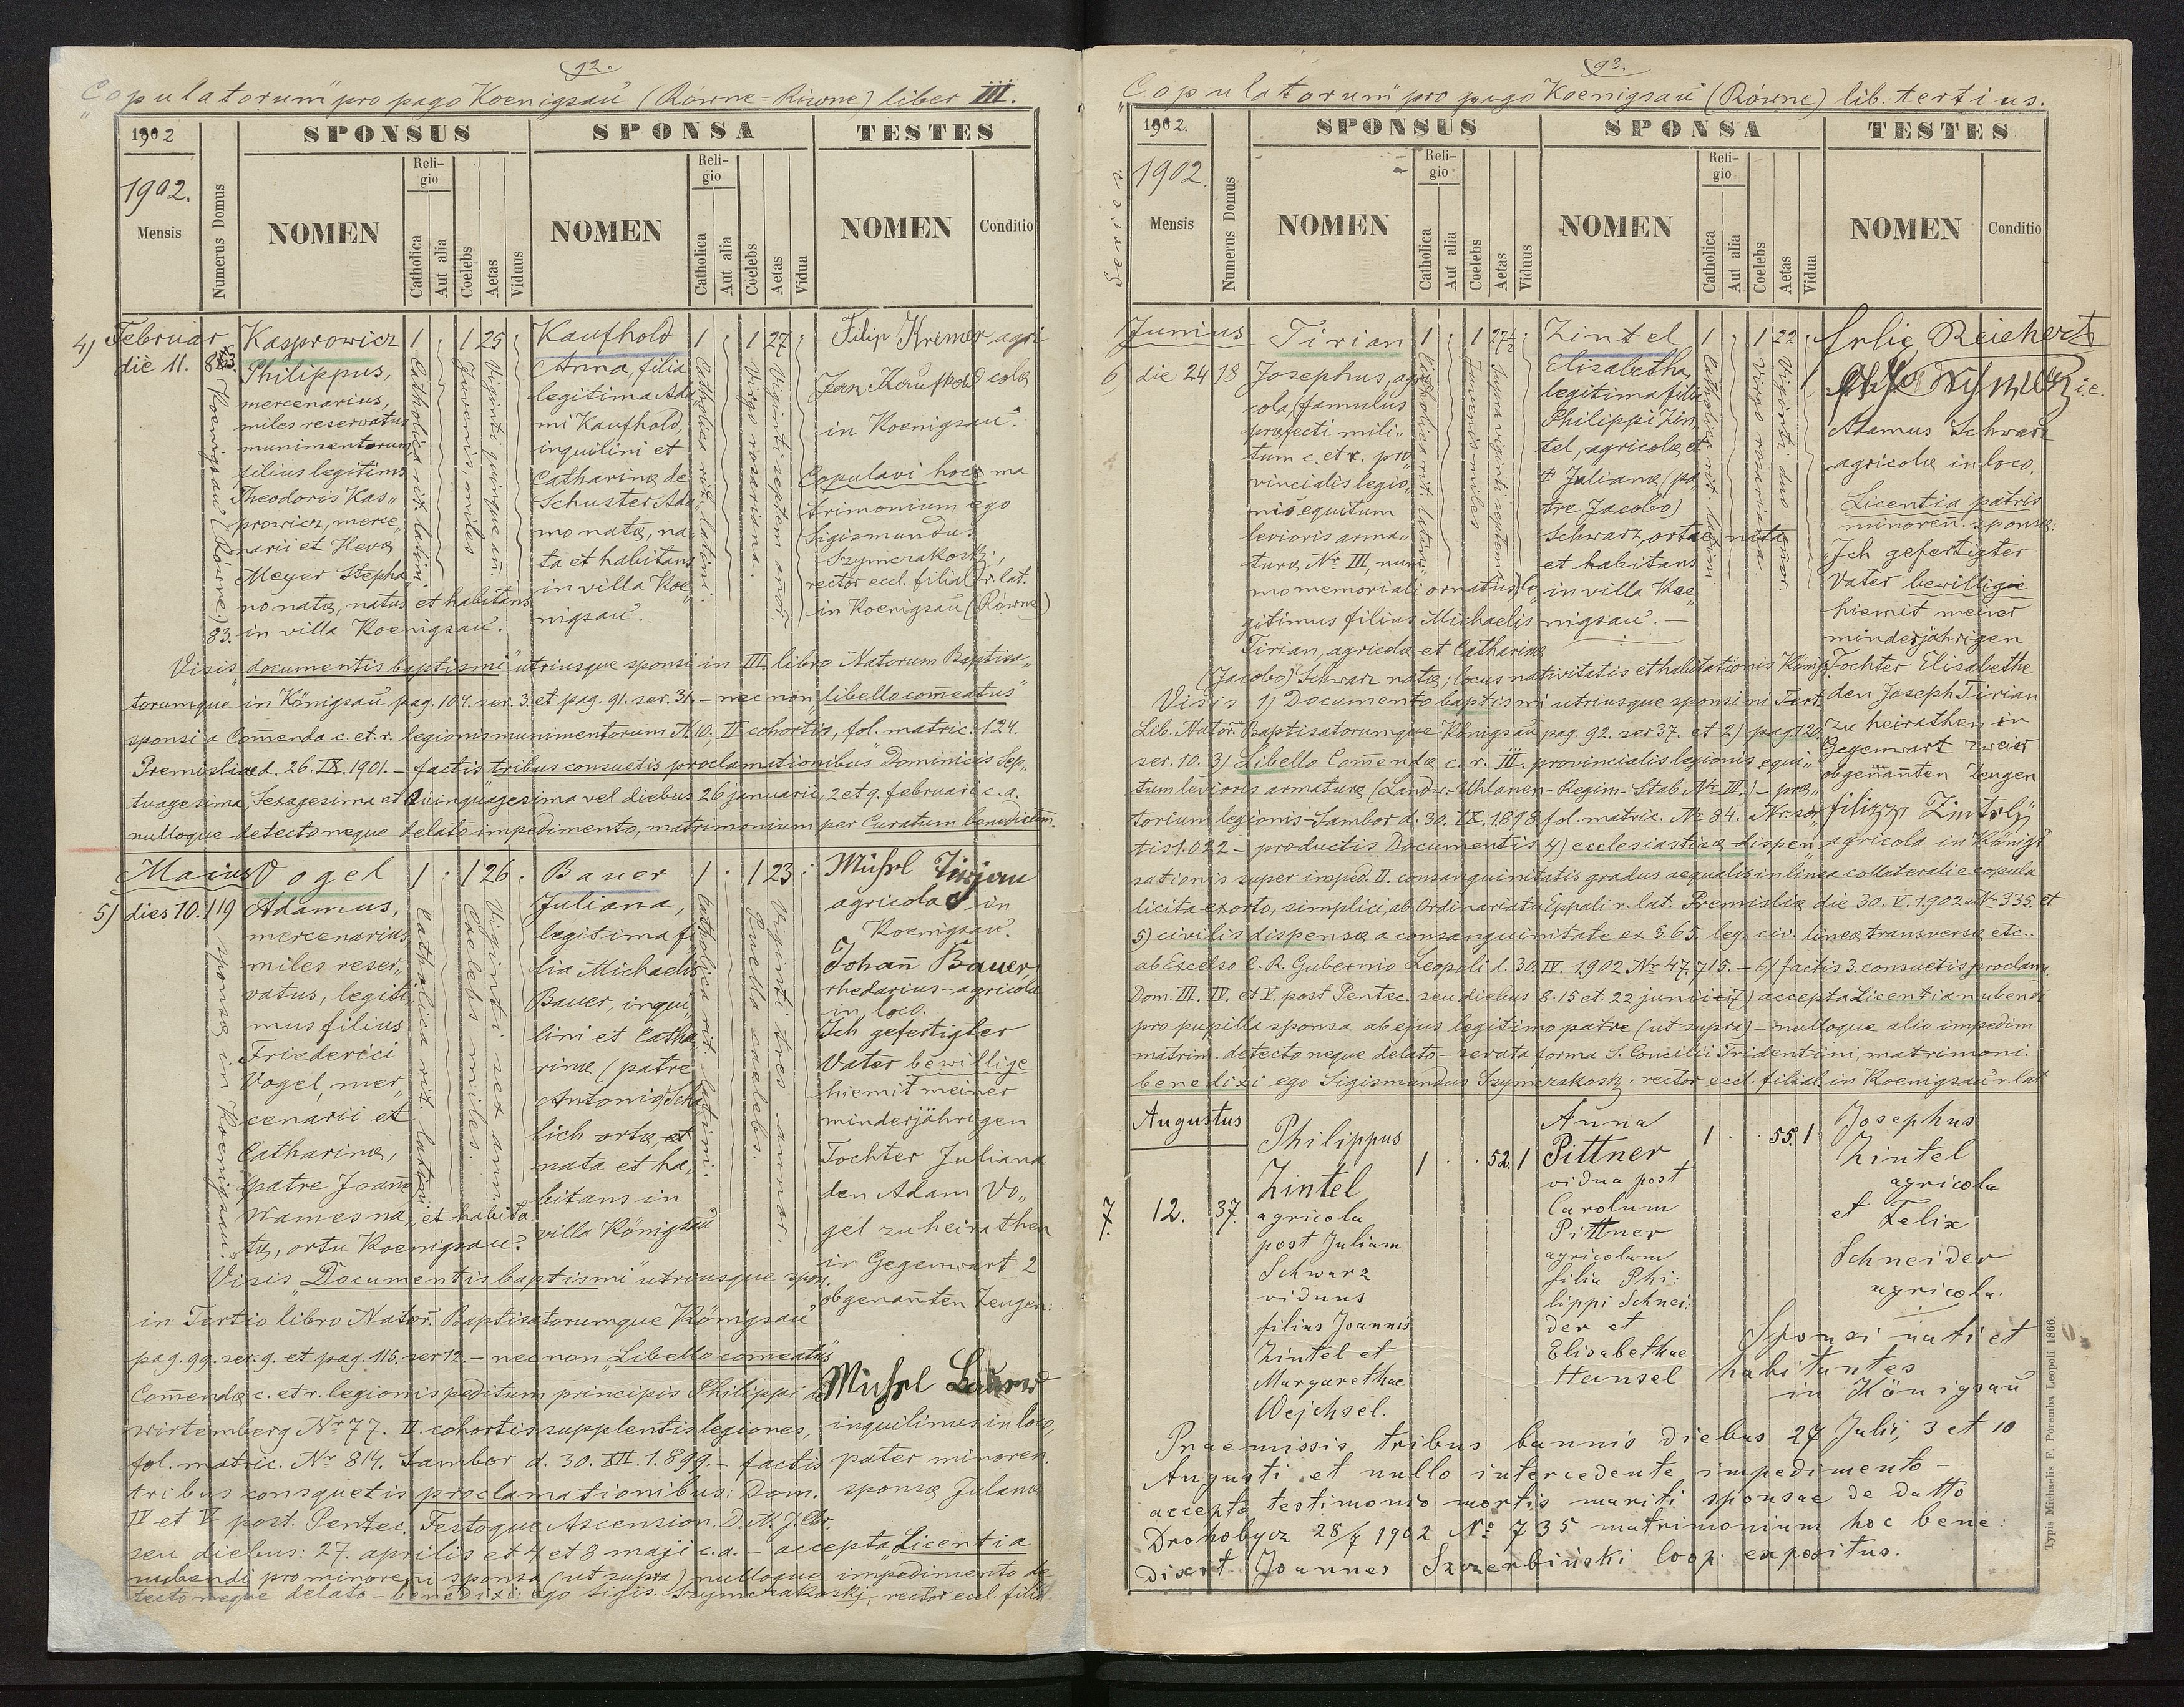 92.
"Copulatorum" pro pago Koenigsau (Równe=Riwne) liber III.
1902
SPONSUS
SPONSA
TESTES
1902.
Mensis
Numerus Domus
NOMEN
Religio
Catholica
Aut alia
Coelebs
Aetas
Viduus
NOMEN
Religio
Catholica
Aut alia
Coelebs
Aetas
Vidua
NOMEN
Conditio
4) Februar
die 11.
83
Koenigsau (Równe) 83.
Kasprowicz
Philippus,
mercenarius,
miles reservatus
munimentorum
filius legitimus
Theodoris Kas„
prowicz, merce„
narii et Hevæ
Meyer Stepha
no natæ, natus et habitans
in villa Koenigsau.
1 . 1 25 .
Catholica rit. latini.
Juvenis miles
Viginti quinque an.
Kaufhold
Anna, filia
legitima Ada
mi Kaufhold,
inquilini et
Catharinæ de
Schuster Ada
mo natæ, na„
ta et habitans
in villa Koe„
nigsau.
1 . 1 27 .
Catholica rit. latini.
Virgo rosariana.
Viginti septem annor.
Filip Kremer agri
Jan Kaufhold colæ
in Koenigsau.
Copulavi hocce ma
trimonium ego
Sigismundus
Szymczakoski,
rector eccl. filial. r. lat.
in Koenigsau (Równe)
Visis „documentis baptismi" utriusque sponsi in III libro Natorum Baptisa„
torumque in Königsau pag. 104. ser. 3. et pag. 91. ser. 31. – nec non „libello com̄eatus"
sponsi a Com̄enda c. et. r. legionis munimentorum N 10, II cohortis, fol. matric. 124.
Premisliæ d. 26. IX. 1901. – factis tribus consuetis proclamationibus Dominicis Sep„
tuagesima, Sexagesima et Quinquagesima vel diebus 26 januarii, 2 et 9. februari c. a.
nulloque detecto neque delato impedimento, matrimonium per Curatum benedictum.
Maius
5) dies 10.
119
sponsæ in Koenigsau.
Vogel
Adamus,
mercenarius
miles reser„
vatus, legiti„
mus filius
Friederici
Vogel, mer„
cenarii et
Catharinæ,
patre Joanne
Wames na„ et habita
tæ, ortu Koenigsau.
1 . 1 26 .
Catholica rit. latini
Caelebs miles.
Viginti sex annor.
Bauer
Juliana,
legitima fi
lia Michaelis
Bauer, inqui„
lini et Catha
rinæ (patre
Antonio) Scha
lich ortæ, et
nata et ha„
bitans in
villa Königsau
1 . 1 23 .
Catholica rit. latini.
Puella caelebs.
Viginti tres annor.
Michel Tirjan
agricola in
Koenigsau.
Johan̄ Bauer
rhedarius – agricola
in loco.
Ich gefertigter
Vater bewillige
hiemit meiner
minderjährigen
Tochter Juliana
den Adam Vo„
gel zu heirathen
in Gegenwart 2
obgenan̄ten Zeugen:
Michel Bauer
inquilinus in loco,
pater minoren.
sponsæ Julianæ
Visis „Documentis baptismi" utriusque spon.
in Tertio libro Nator. Baptisatorumque Königsau
pag. 99. ser. 9. et pag. 115. ser. 12. – nec non „Libello com̄eatus"
Com̄endæ c. et r. legionis peditum principis Philippi
Wirtemberg Nr 77. II. cohortis supplentis legiones,
fol. matric. Nr 814. Sambor d. 30. XII. 1.899. – factis
tribus consuetis proclamationibus: Dom.
IV et V post. Pentec. Festoque Ascension. D. N. J. Chr.
seu diebus: 27. aprilis et 4 et 8 maji c. a. – accepta „Licentia
nubendi pro minoreni sponsa (ut supra) nulloque impedimento de
tecto neque delato – benedixi: ego Sigis. Szymczakoskj, rector eccl. filial.
93.
"Copulatorum" pro pago Koenigsau (Równe) lib. tertius.
1902.
SPONSUS
SPONSA
TESTES
Series
1902.
Mensis
Numerus Domus
NOMEN
Religio
Catholica
Aut alia
Coelebs
Aetas
Viduus
NOMEN
Religio
Catholica
Aut alia
Coelebs
Aetas
Vidua
NOMEN
Conditio
Junius
6 die 24
18
Tirian
Josephus, agri
cola, famulus
præfecti mili„
tum c. et r. pro„
vincialis legio„
nis equitum
levioris arma„
turæ Nr III, num̄
mo memoriali ornatus, le
gitimus filius Michaelis
Tirian, agricolæ et Catharinæ
(Jacobo) Schwarz natæ; locus nativitatis et habitationis König.
1 . 1 27½ .
Catholica rit. latini
Juvenis miles
Zintel
Elisabetha,
legitima filia
Philippi Zin„
tel, agricolæ et
† Julianæ (pa„
tre Jacobo)
Schwarz, ortæ nata
et habitans
in villa Koe„
nigsau. –
1 . 1 22 .
Catholica rit. latini
Virgo rosariana.
Viginti duo annor.
Reichert
i. e.
Adamus Schwarz
agricolæ in loco.
Licentia patris
minoren̄. sponsæ:
Ich gefertigter
Vater bewillige
hiemit meiner
minderjährigen
Tochter Elisabethe
den Joseph Tirian
zu heirathen in
Gegenwart zweier
obgenan̄ten Zeugen
Filipp Zintel
agricola in Königs
Visis 1) Documento baptismi utriusque sponsi in Tert.
Lib. Nator. Baptisatorumque Königsau pag. 92. ser 37. et 2) pag. 120.
ser. 10. 3) Libello Com̄endæ c. r. III. provincialis legionis equi„
tum levioris armaturæ (Landw.-Uhlanen-Regim-Stab Nr III.) – præ„
torium legionis Sambor d. 30. IX. 1898 fol. matric. Nr 84. Nr. sor„
tis 1.022 – productis Documentis 4) ecclesiasticæ dispen„
sationis super imped. II. consanguinitatis gradus aequalis in linea collaterali e copula
licita exorto, simplici, ab Ordinariatu Eppali r. lat. Premisliæ die 30. V. 1902. Nr 335. et
5) civilis dispensæ a consanguinitate ex §. 65. leg. civ. lineæ transversæ etc..
ab Excelso C. R. Gubernio Leopoli d. 30. IV. 1902 Nr 47.715. – 6) factis 3. consuetis proclam.
Dom. III. IV. et V. post Pentec. seu diebus 8. 15 et. 22 junii et 7) accepta Licentia nubendi
pro pupilla sponsa ab ejus legitimo patre (ut supra) – nulloque alio impedim.
matrim. detecto neque delato – servata forma S. Concilii Tridentini, matrimoni.
benedixi ego Sigismundus Szymczakoski rector eccl. filial. in Koenigsau r. lat
Augustus
7. 12.
37.
Philippus
Zintel
agricola
post Juliam
Schwarz
viduus
filius Joannis
Zintel et
Margarethae
Wejchsel.
1 . . 52. 1
Anna
Pittner
vidua post
Carolum
Pittner
agricolam
filia Phi:
lippi Schnei:
der et
Elisabethae
Hansel
1 . . 55. 1
Josephus
Zintel
agricola
et Felix
Schneider
agricola.
Sponsi nati et
habitantes
in Königsau
Praemissis tribus bannis diebus 27 Julii, 3 et 10
Augusti et nullo intercedente impedimento –
accepto testimonio mortis mariti sponsae de datto
Drohobycz 28/7 1902 No 735 matrimonium hoc bene:
dixit Joannes Szczerbiński coop. expositus.
Typis Michaelis F. Poremba Leopoli 1866.